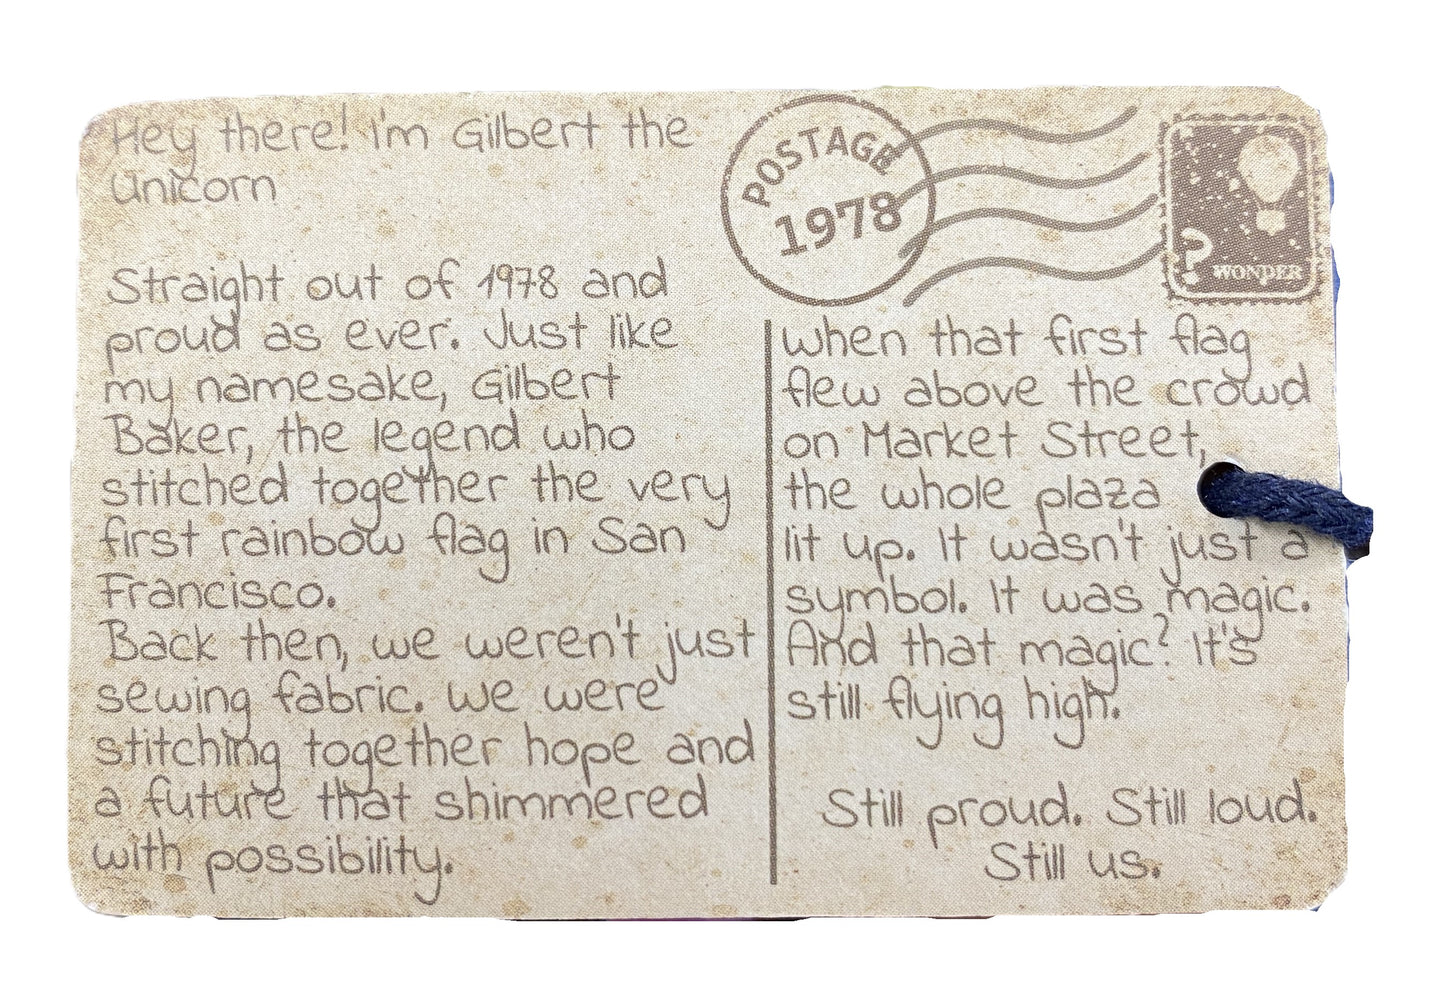 Hey there! I'm Gilbert the
Unicorn
Straight out of 1978 and
proud as ever. Just like
my namesake, Gilbert
Baker, the legend who
stitched together the very
first rainbow flag in San
Francisco.
Back then, we weren't just
sewing fabric. We were
stitching together hope and
a future that shimmered
with possibility.
POSTAGE
1978
?
WONDER
When that first flag
flew above the crowd
on Market Street,
the whole plaza
lit up. It wasn't just a
symbol. It was magic.
And that magic? It's
still flying high.
Still proud. Still loud.
Still us.